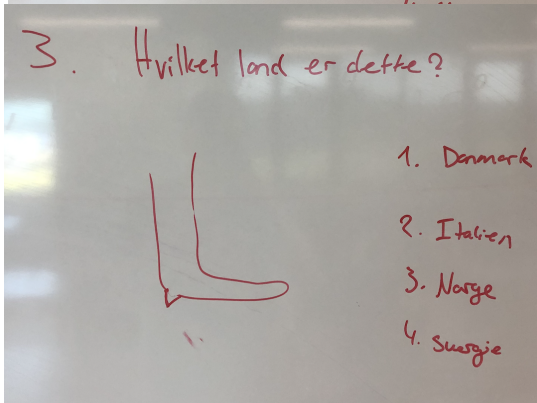 3. Hvilket land er dette?
1. Danmark
2. Italien
3. Norge
4. Suergie